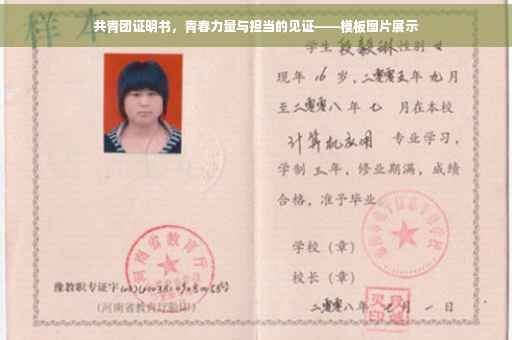 共青团证明书，青春力量与担当的见证——模板图片展示
样本
学生段毅琳性别女
现年16岁，二零零五年九月
至二零零八年七月在本校
计算机应用专业学习，
学制三年，修业期满，成绩
合格，准予毕业。
河南省教育厅
学校（章）
校长（章）
豫教职专证字
（河南省教育厅验印）
二零零八年七月一日